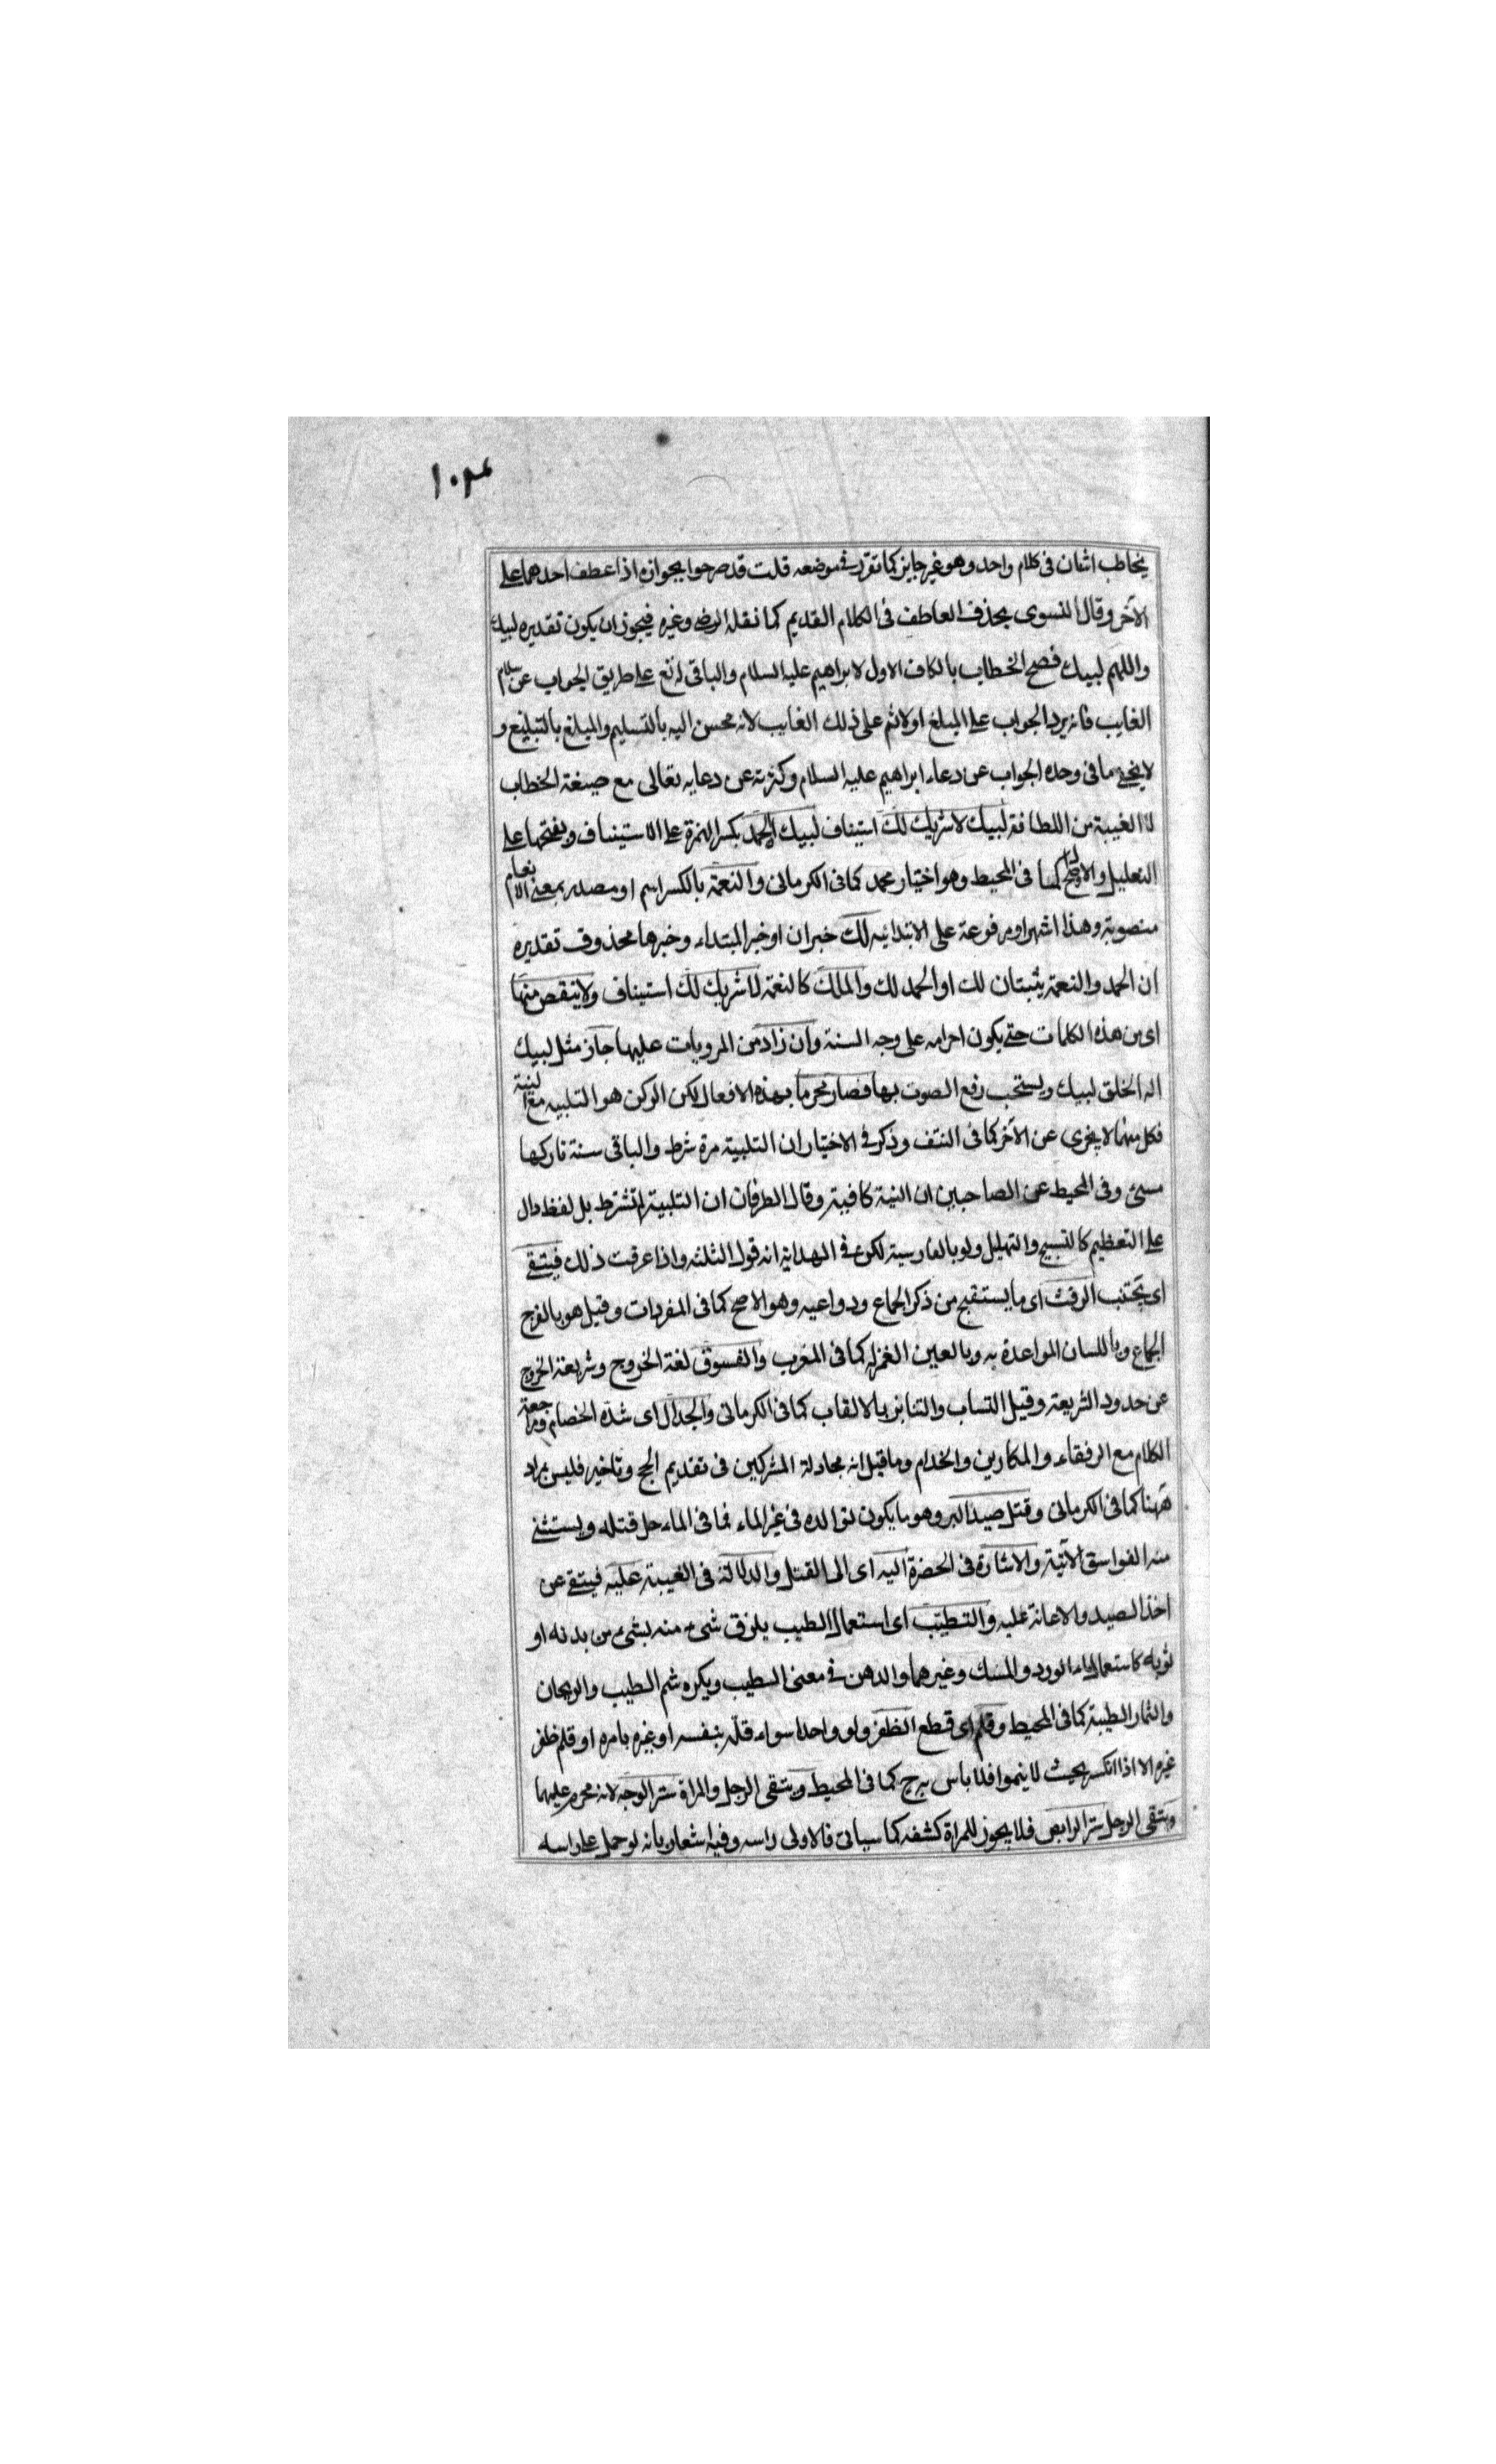 ١٠٣٤
يخاطب اثنان فى كلام واحد وهو غير جايز كما تقرر فى موضعه قلت قد صرحوا بجوازه اذا عطف احدهما على
الآخر وقال النسوى بحذف العاطف فى الكلام القديم كما نقله الرضى وغيره فيجوز ان يكون تقديره لبيك
واللهم لبيك فصح الخطاب بالكاف الاول لابراهيم عليه السلام والباقى له تع على طريق الجواب عن سلام
الغايب فانه يرد الجواب على المبلغ اولا ثم على ذلك الغايب لانه محسن اليه بالتسليم والمبلغ بالتبليغ و
لا يخفى ما فى وحدة الجواب عن دعاء ابراهيم عليه السلام وكثرته عن دعايه تعالى مع صيغة الخطاب
لا الغيبة من اللطافة لبيك لا شريك لك استيناف لبيك ان الحمد بكسر الهمزة على الاستيناف وبفتحها على
التعليل والاصح كسرها فى المحيط وهو اختيار محمد كما فى الكرمانى والنعمة بالكسر اسم او مصدر بمعنى الانعام
منصوبة وهذا اشهر او مرفوعة على الابتدائيه لك خبر ان او خبر المبتداء وخبرها محذوف تقديره
ان الحمد والنعمة يثبتان لك او الحمد لك والملك كالنعمة لا شريك لك استيناف ولا ينقص منها
اى من هذه الكلمات حتى يكون احرامه على وجه السنة وان زاد من المرويات عليها جاز مثل لبيك
اله الخلق لبيك ويستحب رفع الصوت بها فصار محرما بهذه الافعال لكن الركن هو التلبيه مع النية
فكل منهما لا يجزى عن الآخر كما فى النتف وذكر فى الاختيار ان التلبية مرة شرط والباقى سنة تاركها
مسئ وفى المحيط عن الصاحبين ان النية كافية وقال الطرفان ان التلبية لم تشترط بل لفظ دال
على التعظيم كالتسبيح والتهليل ولو بالفارسية لكن فى الهداية انه قول الثلثة واذا عرفت ذلك فيتقى
اى يجتنب الرفث اى ما يستقبح من ذكر الجماع ودواعيه وهو الاصح كما فى المفردات وقيل هو بالفرج
الجماع وباللسان المواعدة به وبالعين الغمز له كما فى المغرب والفسوق لغة الخروج وشريعة الخروج
عن حدود الشريعة وقيل التساب والتنابز بالالقاب كما فى الكرمانى والجدال اى شدة الخصام ومراجعة
الكلام مع الرفقاء والمكارين والخدام وما قيل انه مجادلة المشركين فى تقديم الحج وتاخيره فليس بمراد
ههنا كما فى الكرمانى وقتل صيد البر وهو ما يكون توالده فى غير الماء فما فى الماء حل قتله ويستثنى
منه الفواسق الآتية والاشارة فى الحضرة اليه اى الى القتل والدلالة فى الغيبة عليه فيتقى عن
اخذ الصيد والاعانة عليه والتطيب اى استعمال الطيب يلزق شىء منه بشىء من بدنه او
ثوبه كاستعمال ماء الورد والمسك وغيرهما والدهن فى معنى الطيب ويكره شم الطيب والريحان
والثمار الطيبة كما فى المحيط وقلم اى قطع الظفر ولو واحدا سواء قلمه بنفسه او غيره بامره او قلم ظفر
غيره الا اذا انكسر بحيث لا ينموا فلا باس به ح كما فى المحيط ويتقى الرجل والمراة ستر الوجه لانه محرم عليهما
ويتقى الرجل ستر الراس فلا يجوز للمراة كشفه كما سياتى فالاولى راسه وفيه اشعار بانه لو حمل على راسه